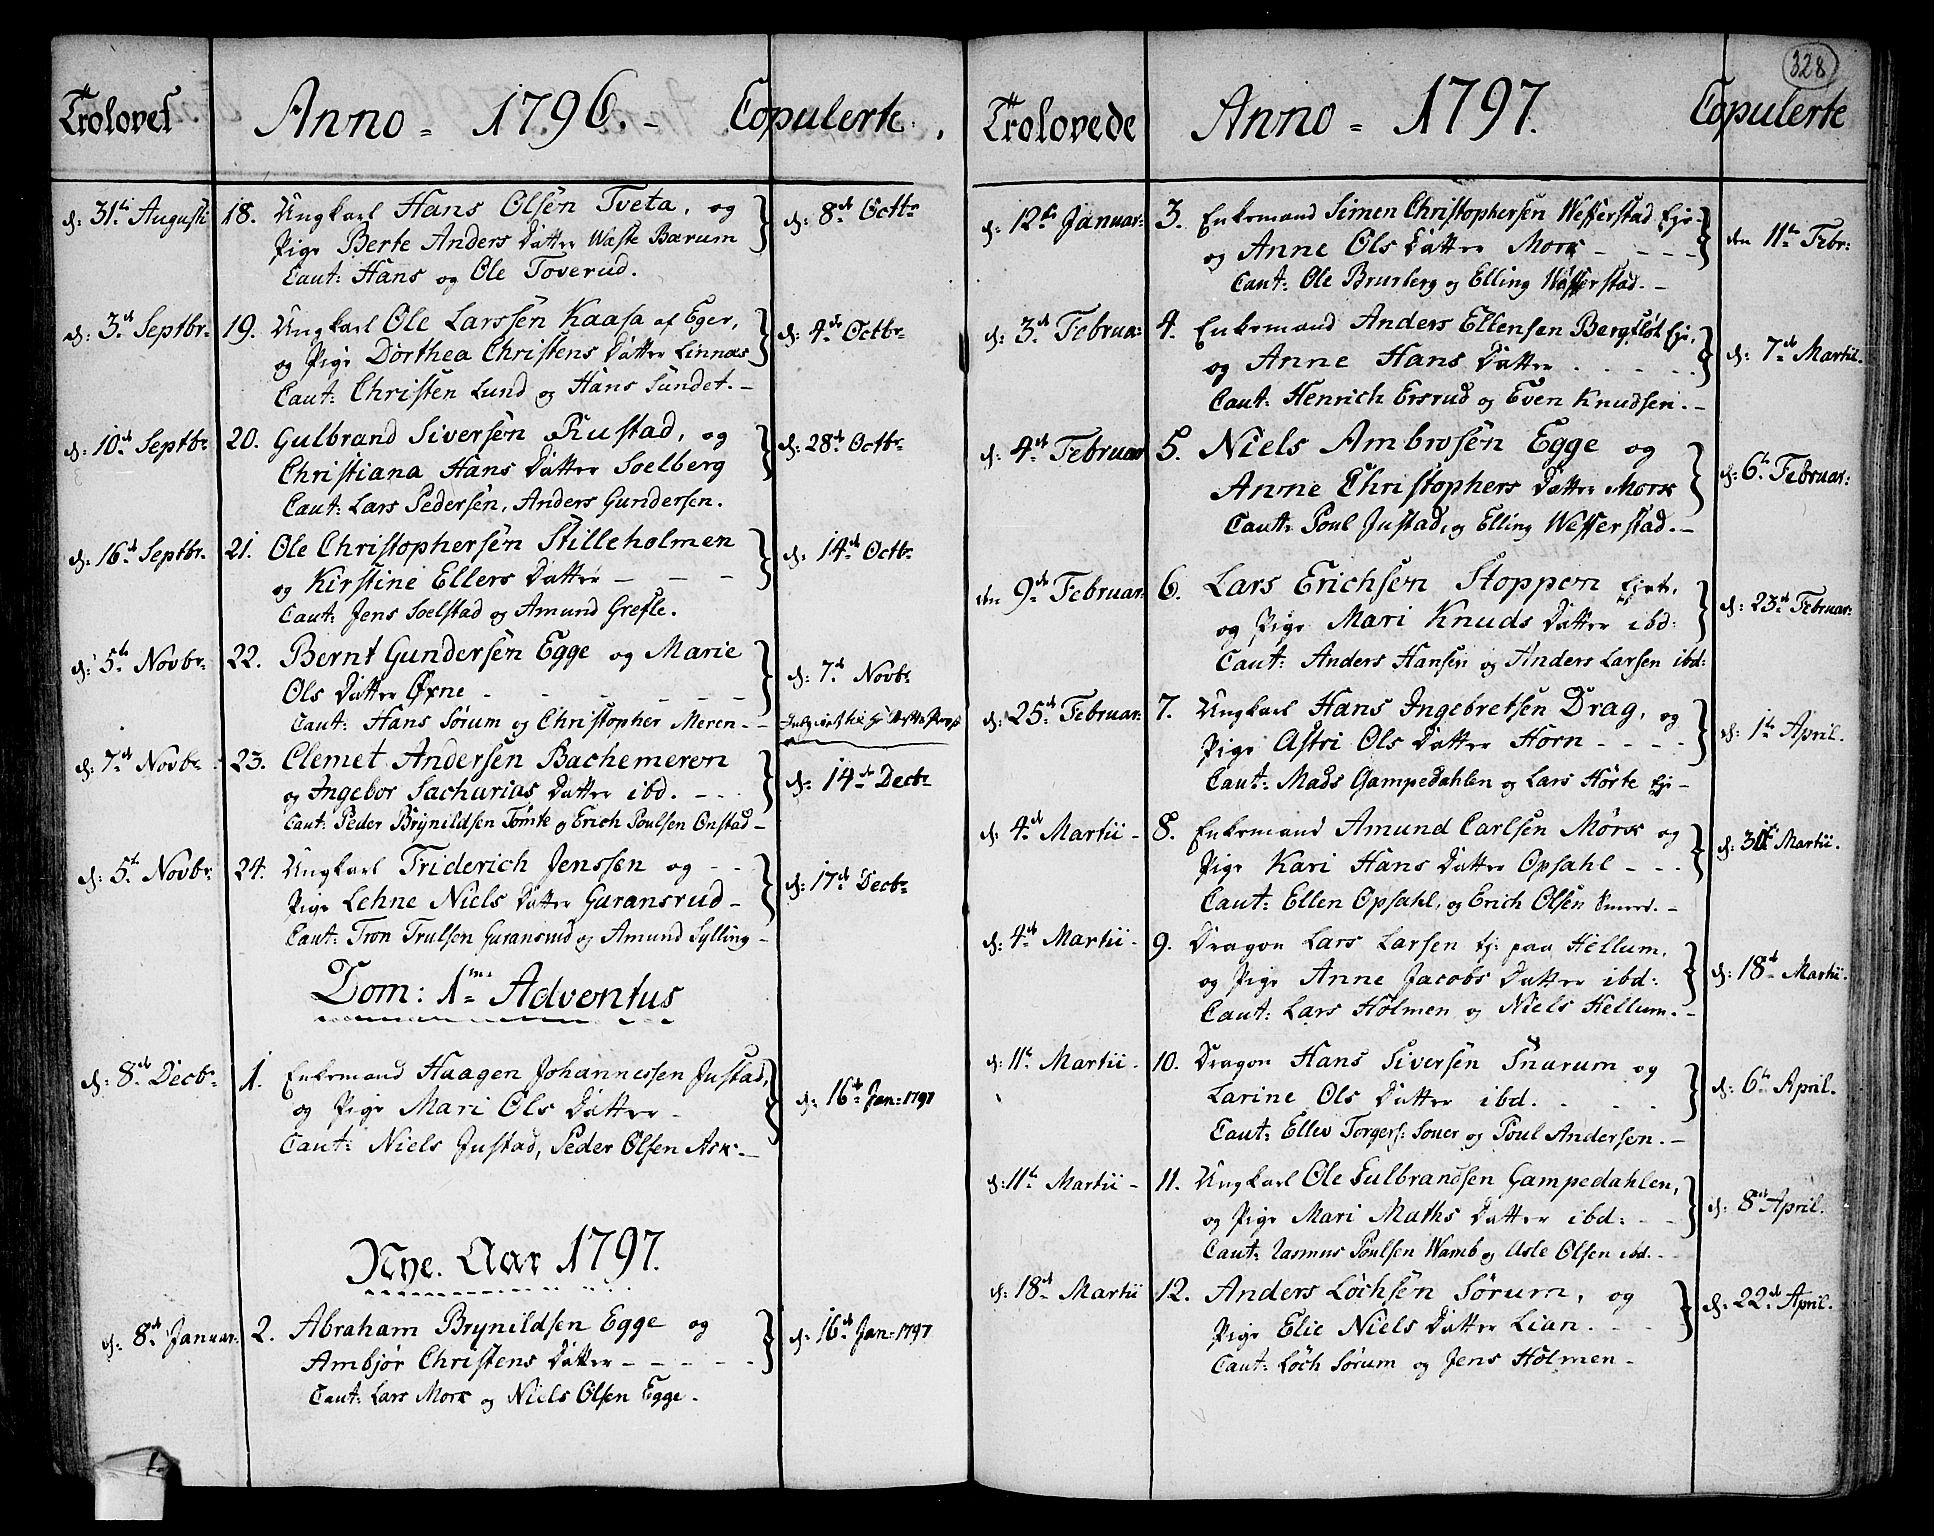 Trolovet Anno = 1796. - Copulerte.
d: 31te Augusti 18. Ungkarl Hans Olsen Tveta, og d: 8de Octbr
Pige Berte Anders Datter Wæste Bærum
Caut: Hans og Ole Toverud.
d: 3de Septbr. 19. Ungkarl Ole Larssen Kaasa af Eger, d: 4de Octbr
og Pige Dorthea Christens Datter Linnæs
Caut: Christen Lund og Hans Sundet. -
d: 10de Septbr 20. Gulbrand Siversen Rustad, og d: 28de Octbr
Christiana Hans Datter Soelberg
Caut: Lars Pedersen, Anders Gundersen.
d: 16de Septbr. 21. Ole Christophersen Stilleholmen d: 14de Octbr
og Kirstine Ellers Datter - - -
Caut: Jens Soelstad og Amund Grefle.
d: 5te Novbr. 22. Bernt Gundersen Egge og Marie d: 7de Novbr
Ols Datter Øxne - - - - - -
Caut: Hans Sørum og Christopher Meren - -
d: 7de Novbr 23. Clemet Andersen Bachemeren d: 14de Decbr
og Ingebor Sacharias Datter ibd. - - .
Caut: Peder Brynildsen Tomte og Erich Poulsen Onstad -
d: 5te Novbr. 24. Ungkarl Friderich Jenssen og - - d: 17de Decbr
Pige Lehne Niels Datter Guransrud -
Caut: Tron Trulsen Guransrud og Amund Sylling -
Dom: 1ma Adventus
d: 8de Decbr 1. Enkemand Haagen Johannessen Justad, d: 16de Jan: 1797
og Pige Mari Ols Datter -
Caut: Niels Justad, Peder Olsen Ask. -
Nye Aar 1797.
d: 8de Januar: 2. Abraham Brynildsen Egge og d: 16de Jan: 1797
Ambjør Christens Datter - - - - -
Caut: Lars Mork og Niels Olsen Egge -
328
Trolovede Anno = 1797. Copulerte
d: 12te Januar: 3. Enkemand Simen Christophersen Wefferstad Eje- den 11te Febr:
og Anne Ols Datter Mork - - - -
Caut: Ole Brurberg og Elling Wefferstad. -
d: 3de Februa: 4. Enkemand Anders Ellensen Bergsløt Eje, d: 7de Martii.
og Anne Hans Datter . . . . .
Caut: Henrich Ersrud og Even Knudsen. -
d: 4de Februar 5. Niels Ambrosen Egge og d: 6te Februar:
Anne Christophers Datter Mork
Caut: Poul Justad, og Elling Wefferstad. -
den 9de Februar: 6. Lars Erichsen Stoppen Ejet, d: 23de Februar:
og Pige Mari Knuds Datter ibd:
Caut: Anders Hansen og Anders Larsen ibd:
d: 25de Februar: 7. Ungkarl Hans Ingebretsen Drag, og d: 1te April.
Pige Astri Ols Datter Horn - - - -
Caut: Mads Gampedahlen og Lars Horte Eje -
d: 4de Martii - 8. Enkemand Amund Carlsen Mork og d: 31te Martii.
Pige Kari Hans Datter Opsahl - - .
Caut: Ellen Opsahl, og Erich Olsen -
d: 4de Martii - 9. Dragon Lars Larsen tj: paa Hellum, d: 18de Martii.
og Pige Anne Jacobs Datter ibd:
Caut: Lars Holmen og Niels Hellum. -
d: 11te Martii - 10. Dragon Hans Siversen Snarum og d: 6te April.
Larine Ols Datter ibd. - - -
Caut: Ellev Torgers: Soner og Poul Andersen. -
d: 11te Martii - 11. Ungkarl Ole Gulbrandsen Gampedahlen, d: 8de April.
og Pige Mari Maths Datter ibd: - -
Caut: Rasmus Poulsen Wamb og Asle Olsen ibd. -
d: 18de Martii 12. Anders Løchsen Sørum, og d: 22de April.
Pige Elie Niels Datter Lian. - - -
Caut: Løch Sørum og Jens Holmen -